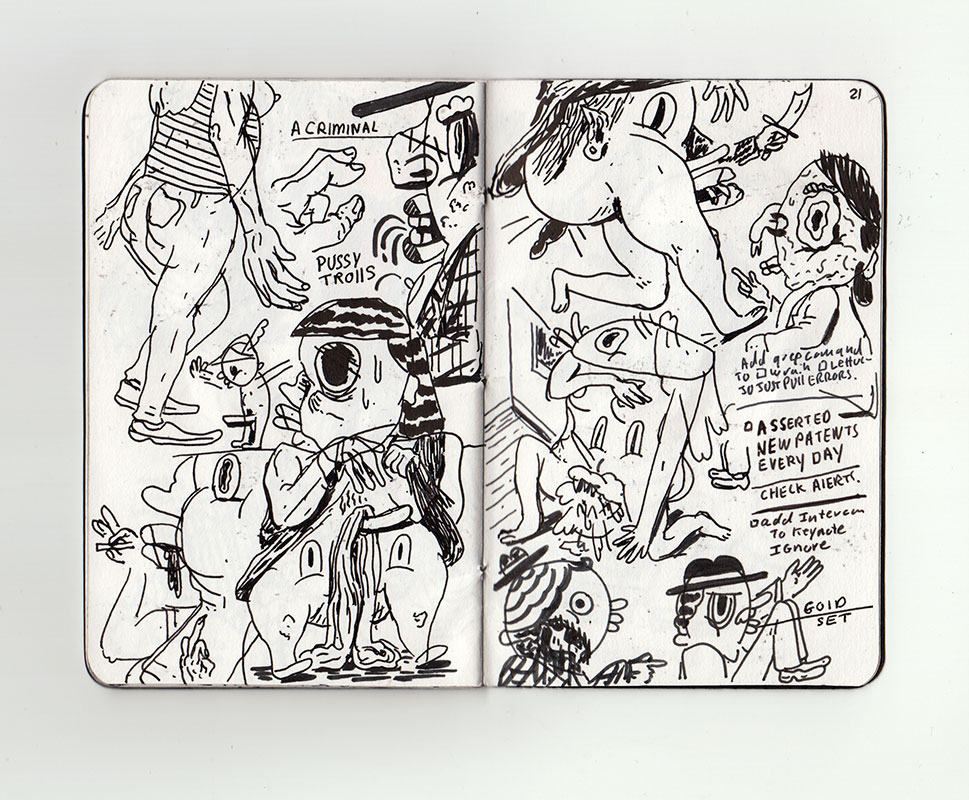 A CRIMINAL
PUSSY
TROLLS
21
Add grep comand
TO
SO JUST PULL ERRORS.
ASSERTED
NEW PATENTS
EVERY DAY
CHECK ALERTS.
add Intercom
To Keynote
IGNORE
GOLD
SET